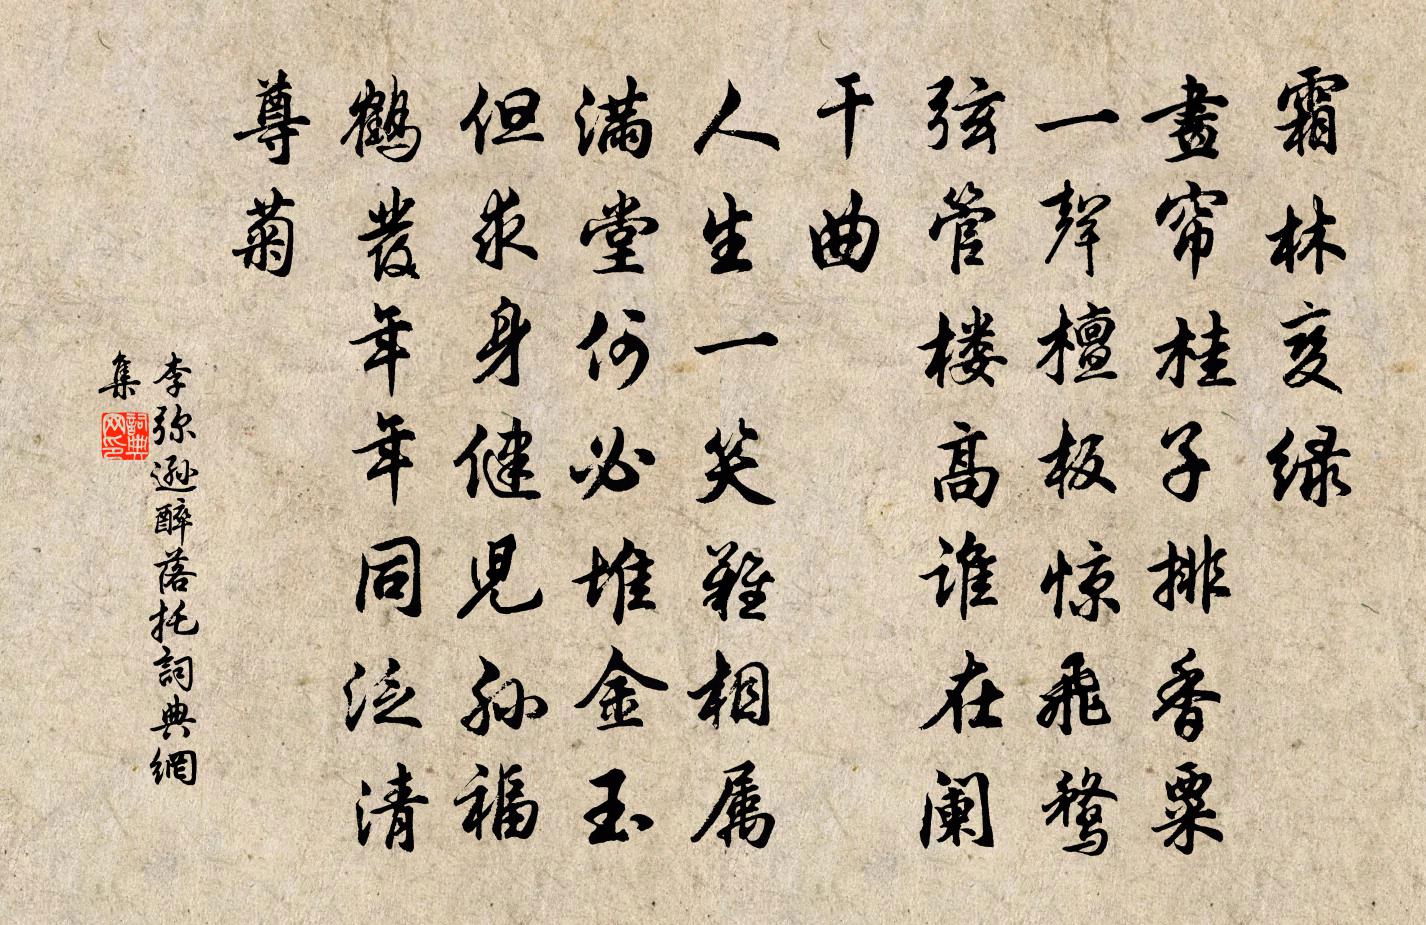 霜林变绿
畫帘桂子排香粟
一聲檀板惊飛鹜
弦管楼高谁在阑
干曲
人生一笑難相属
满堂何必堆金玉
但求身健兒孙福
鶴发年年同泛清
尊菊
李弥逊醉落托詞典網
集
詞典网印